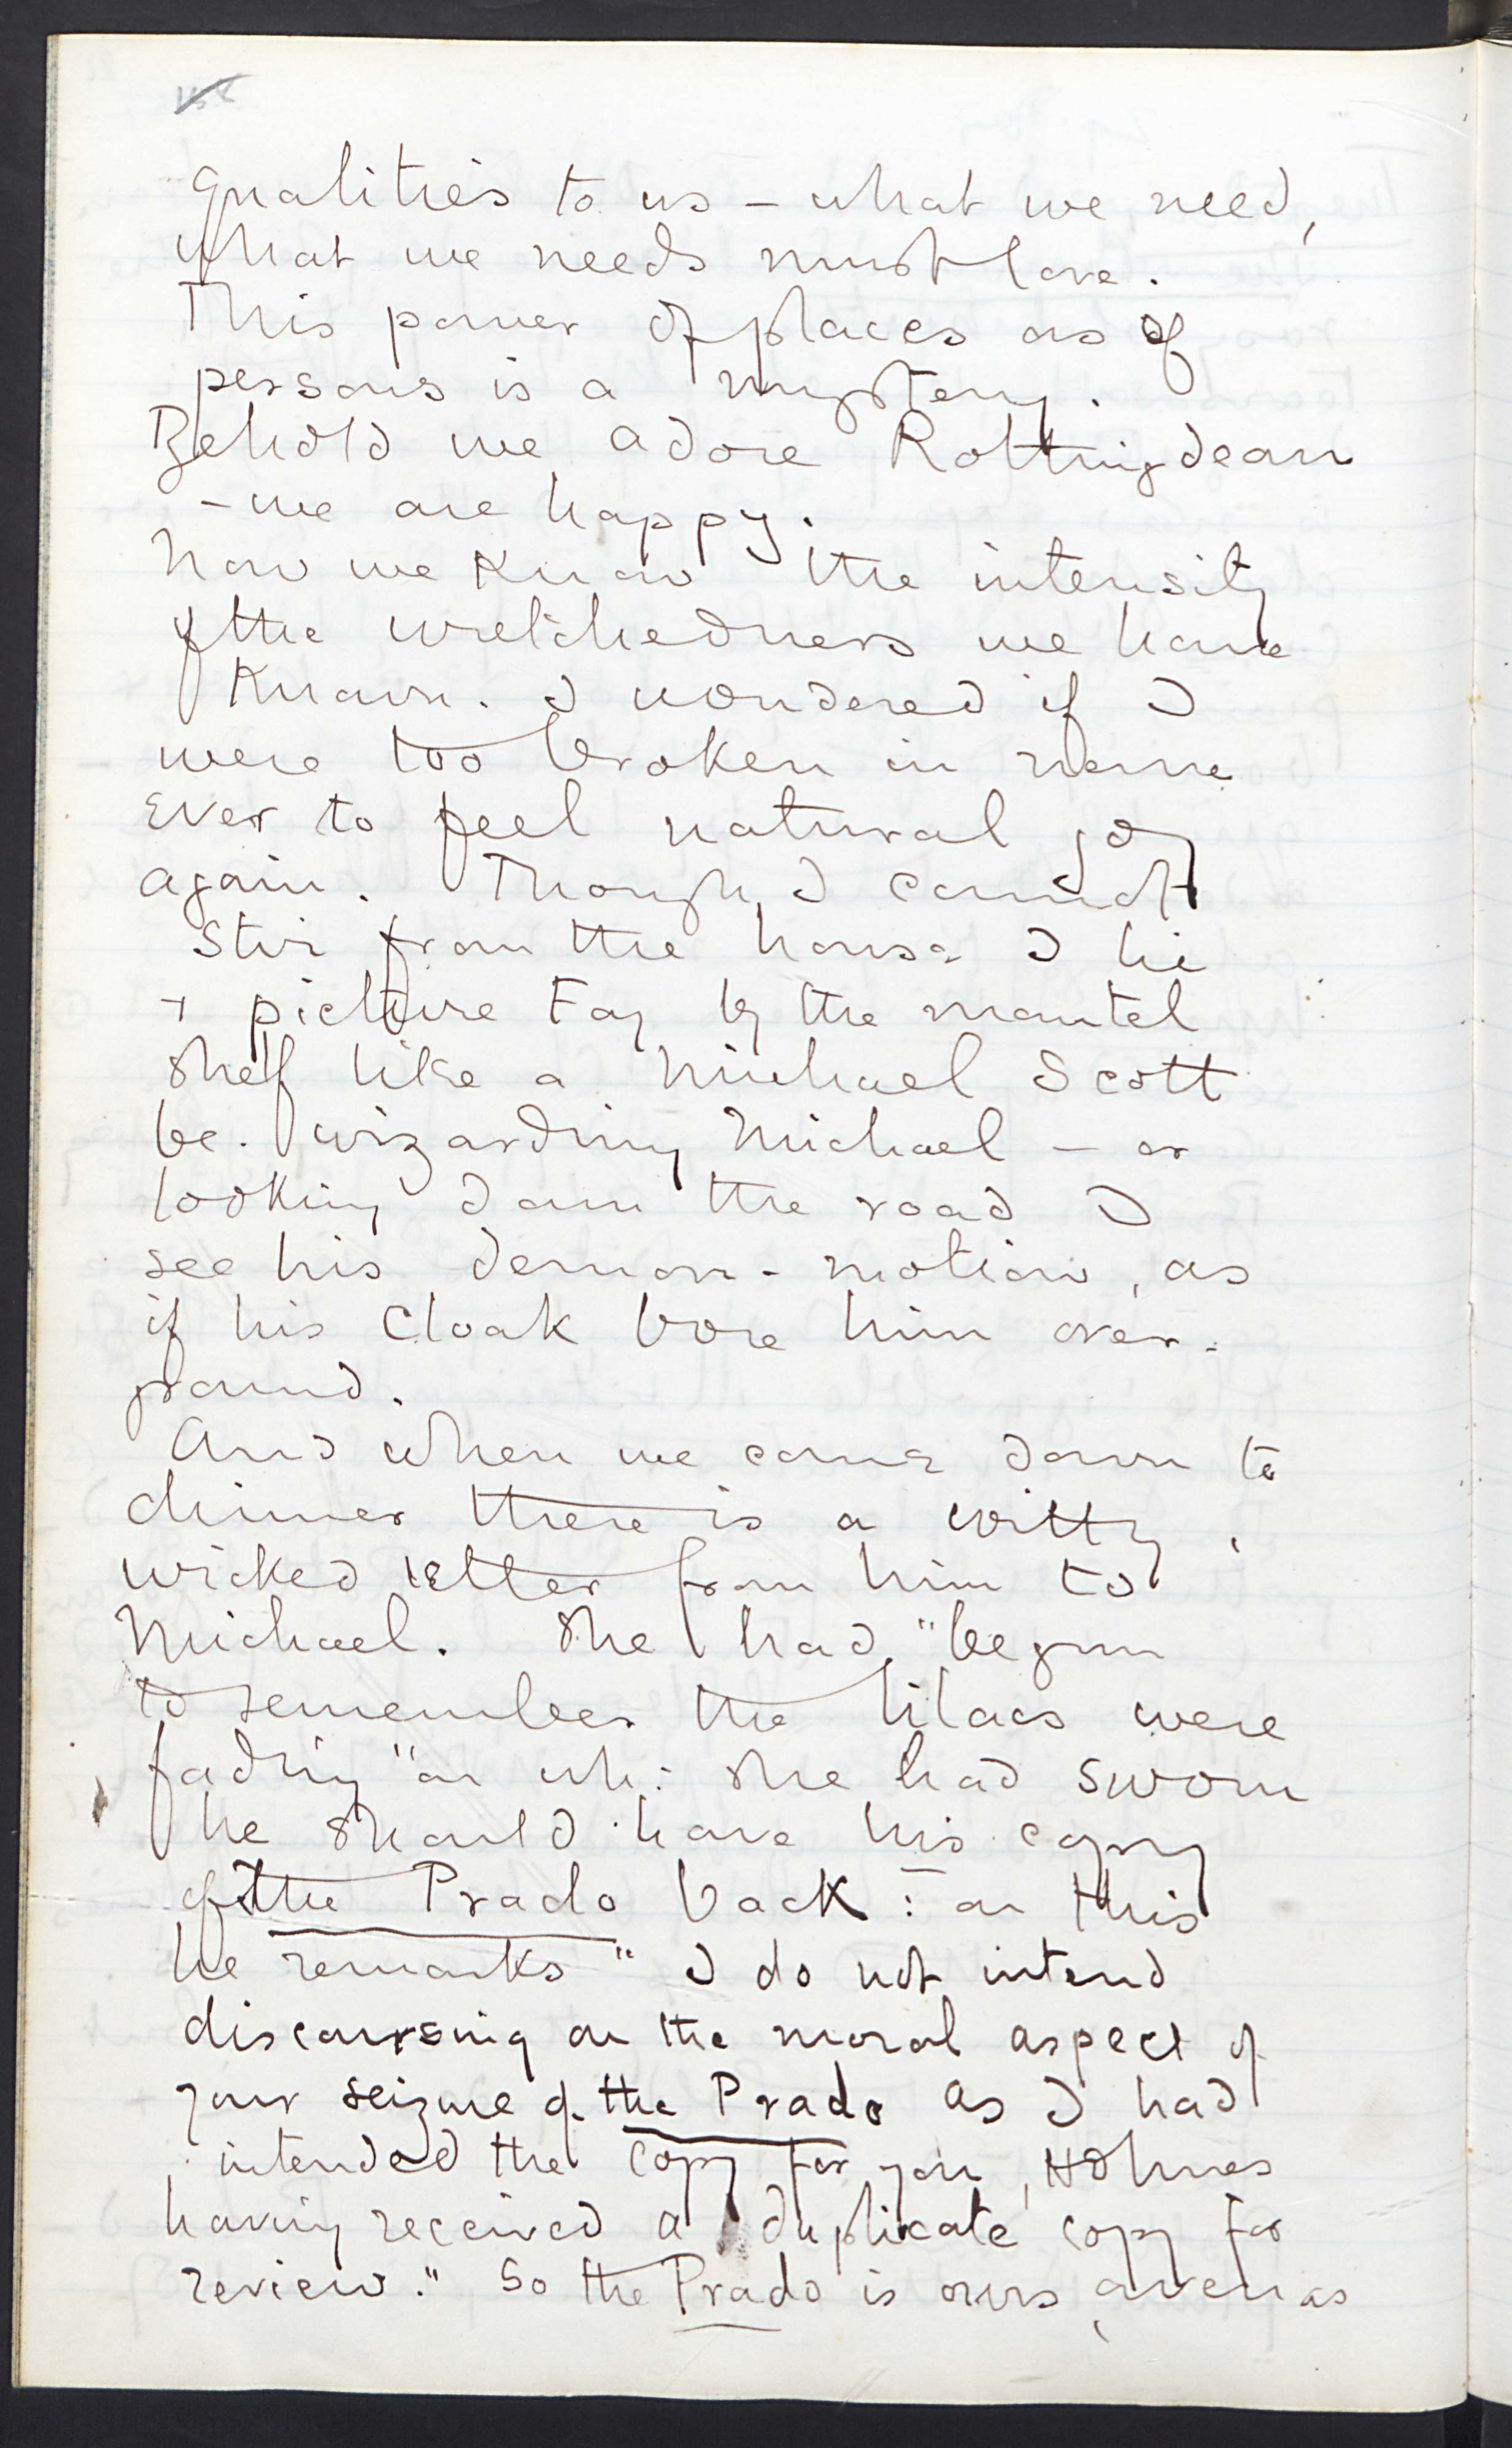 qualities to us – what we need,
what we needs must love.
This power of places as of
persons is a mystery.
Behold we adore Rottingdean
– we are happy.
Now we know the intensity
of the wretchedness we have
known. I wondered if I
were too broken in nerve
ever to feel natural joy
again. Though I cannot
stir from the house I lie
+ picture Fay by the mantel
shelf like a Michael Scott
be-wizarding Michael – or
looking down the road I
see his demon-motion, as
if his cloak bore him over-
ground.
And when we come down to
dinner there is a witty,
wicked letter from him to
Michael. She had "begun
to remember the lilacs were
fading" on wh: she had sworn
he should have his copy
of the Prado back: – on this
he remarks "I do not intend
discoursing on the moral aspect of
your seizure of the Prado as I had
intended the copy for you, Holmes
having received a duplicate copy for
review." So the Prado is ours, given as